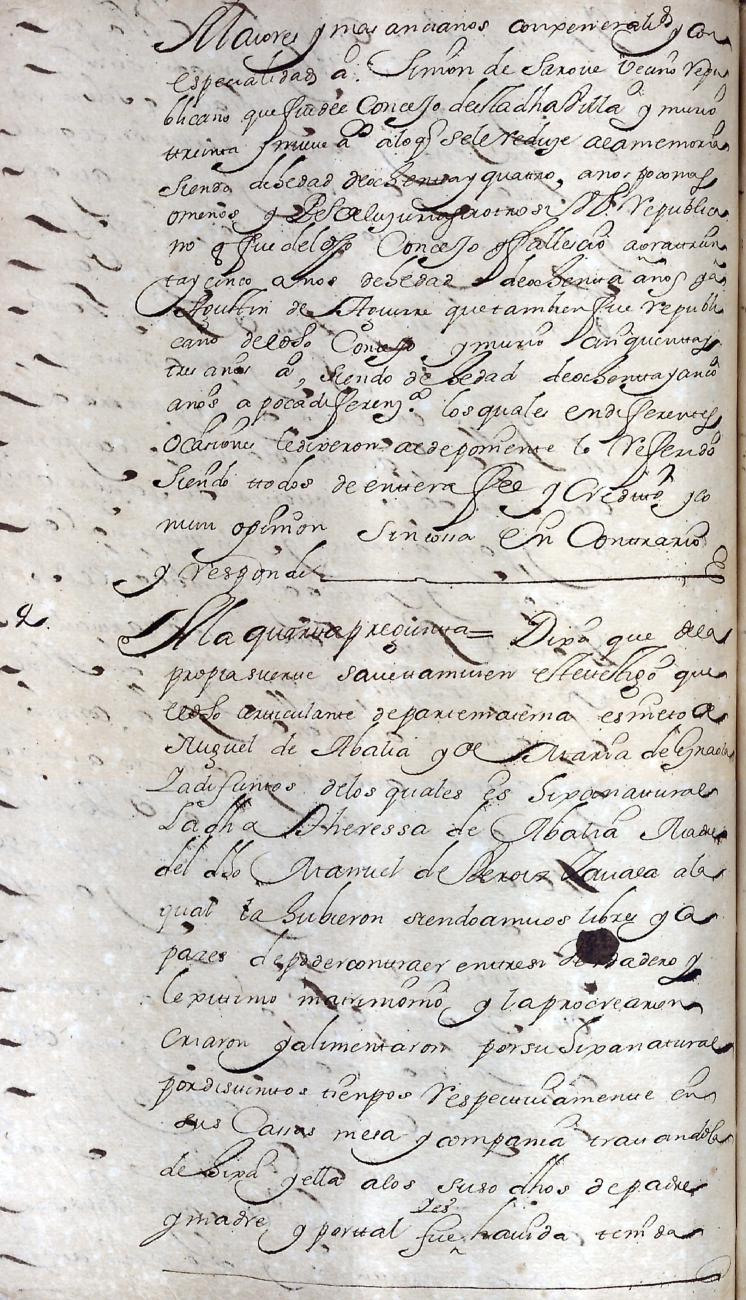 Maiores y mas ancianos con xeneralid y con
espeçialidad a Simon de Sarove veçino repu
blicano que fue de Conçejo de la dha Villa y murio
treinta y nueve as a lo q se le reduje a la memoria
siendo de hedad de ochenta y quatro, anos poco mas
omenos y republica
no q fue del dho Conçejo q ffallesçio aora trein
tay cinco años de hedad de ochenta años y a
Agustin de Aguirre que tambien fue republi
cano del dho Conçejo y murio çinquenta y
tres años a, siendo de hedad de ochenta y çinco
años a poca differenza los quales en differentes
ocasiones le dixeron al deponente lo refferido
siendo ttodos de entera ffee y Credito y co
mun opinion sin cossa en Contrario
y responde
4
A la quarta pregunta = Dixo que de la
propia suerte save tamvien este testigo que
el dho articulante de parte materna es nieto de
Miguel de Abalia y de Maria de
la difuntos de los quales es hixa natural
La dha Theressa de Abalia Madre
del dho Manuel de Beroiz Zavala a la
qual la hubieron siendo amvos libres y ca
pazes de poder contraer entresi Verdadero y
lexitimo matrimonio y la procrearon
criaron y alimentaron por su hixa natural
por distintos tienpos respectivamente en
sus Cassas mesa y compania tratandola
de hixa y ella a los suso dhos de padre
y madre y por ttal fue havida tenida
y es